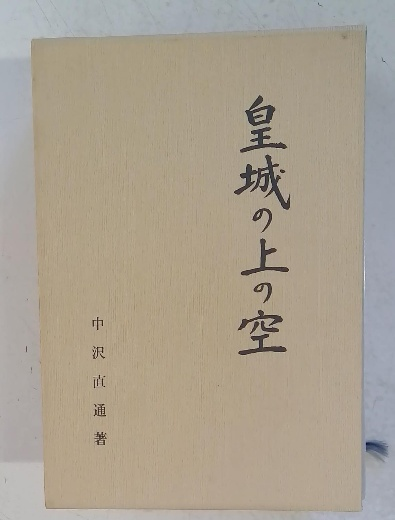 皇城の上の空
中沢直通著